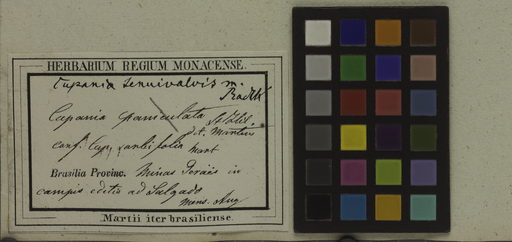 HERBARIUM REGIUM MONACENSE.
Cupania tenuivalvis m.
Radlk
Cupania paniculata
det. Martius
conf. Cup. xantifolia Mart
Brasilia Provinc. Minas Geraës in
campis editis ad Salgado
mens. Aug
Martii iter brasiliense.